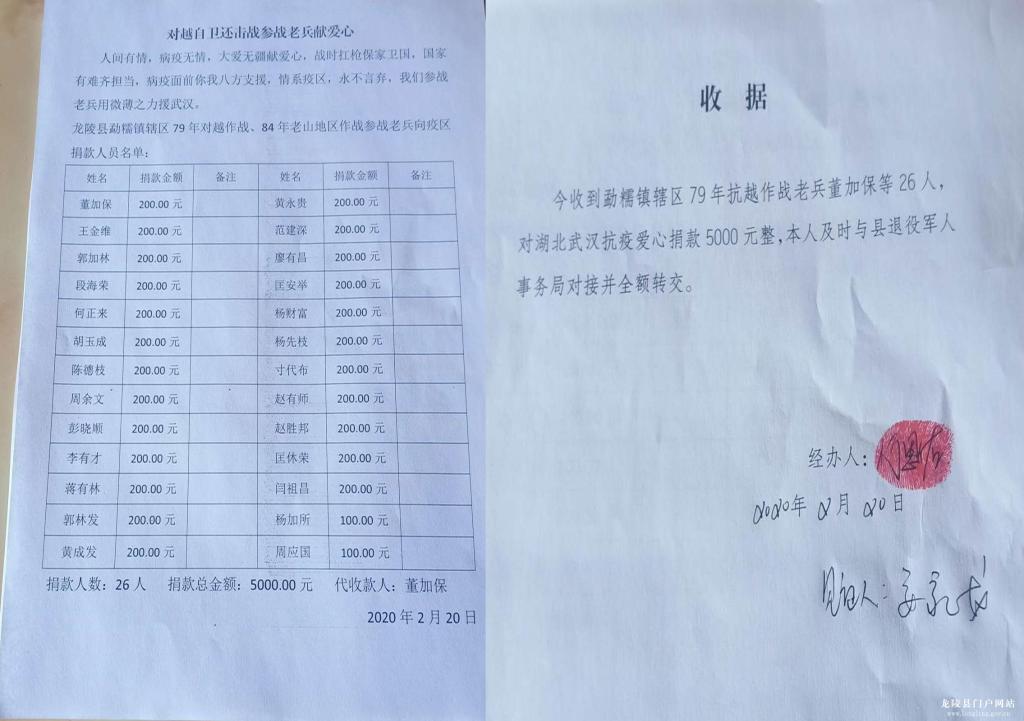 对越自卫还击战参战老兵献爱心
人间有情，病疫无情，大爱无疆献爱心，战时扛枪保家卫国，国家
有难齐担当，病疫面前你我八方支援，情系疫区，永不言弃，我们参战
老兵用微薄之力援武汉。
龙陵县勐糯镇辖区 79 年对越作战、84 年老山地区作战参战老兵向疫区
捐款人员名单：
姓名 捐款金额 备注 姓名 捐款金额 备注
董加保 200.00 元 黄永贵 200.00 元
王金维 200.00 元 范建深 200.00 元
郭加林 200.00 元 廖有昌 200.00 元
段海荣 200.00 元 匡安举 200.00 元
何正来 200.00 元 杨财富 200.00 元
胡玉成 200.00 元 杨先枝 200.00 元
陈德枝 200.00 元 寸代布 200.00 元
周余文 200.00 元 赵有师 200.00 元
彭晓顺 200.00 元 赵胜邦 200.00 元
李有才 200.00 元 匡休荣 200.00 元
蒋有林 200.00 元 闫祖昌 200.00 元
郭林发 200.00 元 杨加所 100.00 元
黄成发 200.00 元 周应国 100.00 元
捐款人数：26 人 捐款总金额：5000.00 元 代收款人：董加保
2020 年 2 月 20 日
收 据
今收到勐糯镇辖区 79 年抗越作战老兵董加保等 26 人，
对湖北武汉抗疫爱心捐款 5000 元整，本人及时与县退役军人
事务局对接并全额转交。
经办人：
2020年 2 月 20 日
见证人：
龙陵县门户网站
www.longling.gov.cn